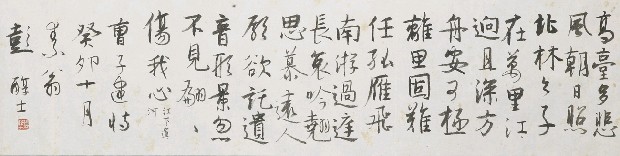 高臺多悲
風朝日照
北林之子
在萬里江
迥且深方
舟安可極
離思固難
任孤雁飛
南游過庭
長哀吟翹
思慕遠人
願欲託遺
音形景忽
不見翩〻
傷我心 江下遺湖
曹子建詩
癸卯十月
素翁
彭醇士